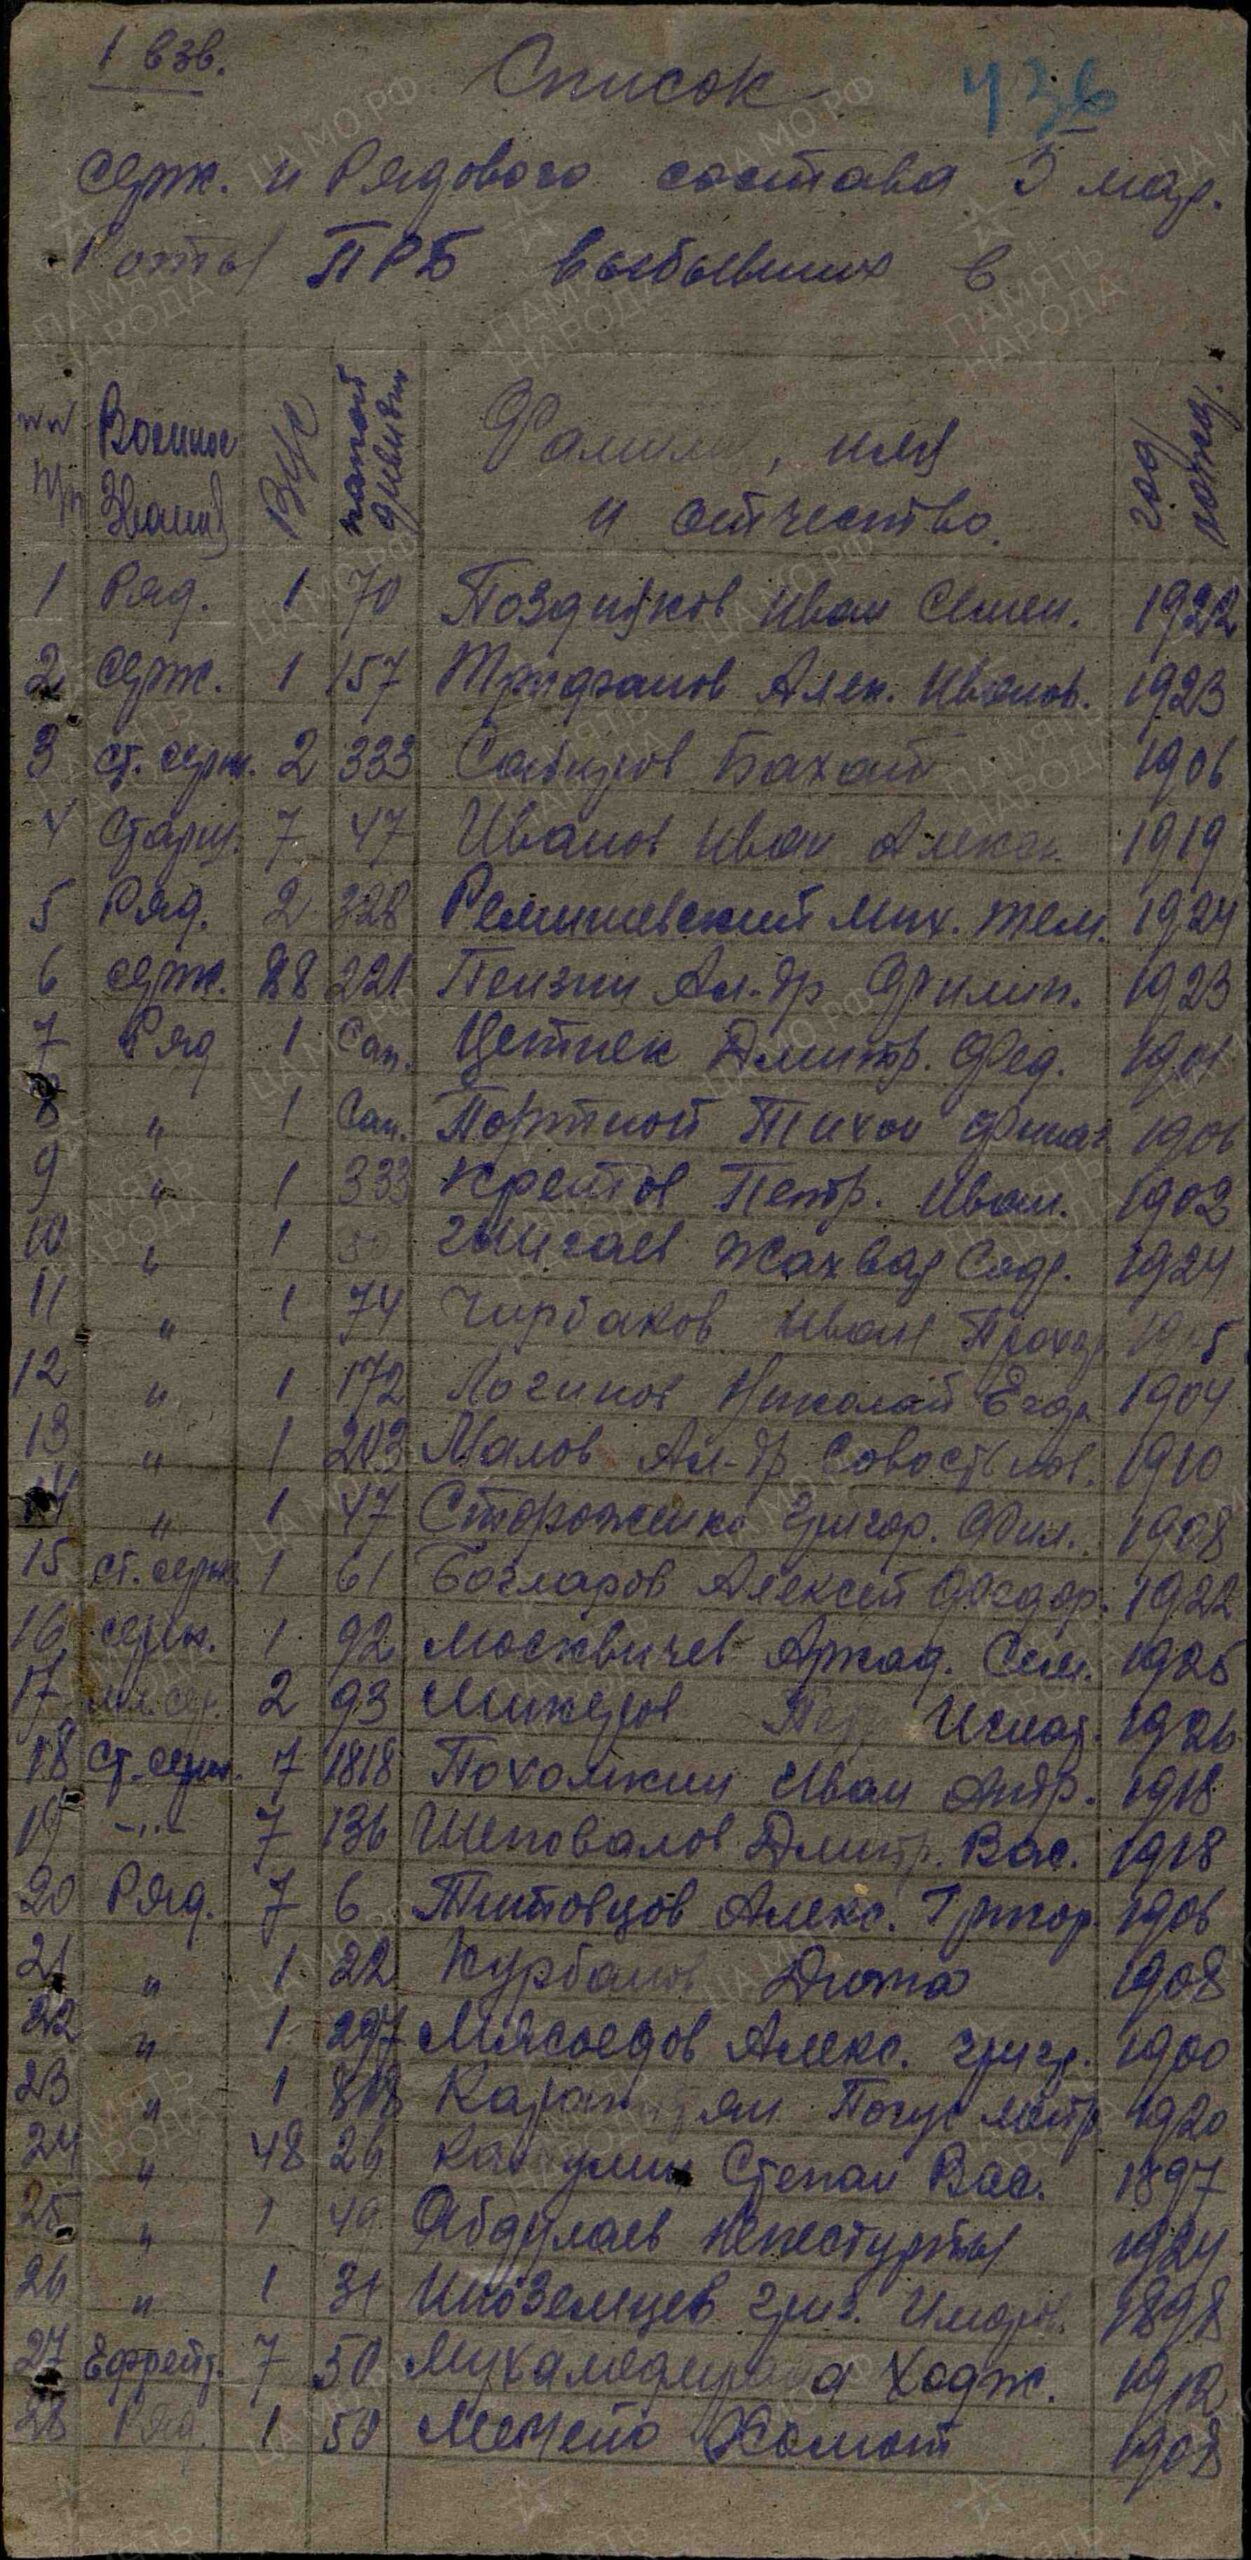 1 взв.
Список
436
серж. и Рядового состава 5 мар.
Роты ПРБ выбывших в
№№ п/п Военное Звание ВУС какой дивизии Фамилия, имя и отчество. год рожд.
1 Ряд. 1 70 Поздняков Иван Семен. 1922
2 серж. 1 157 Трифанов Алек. Иванов. 1923
3 ст. серж. 2 333 Сабиров Бахат 1906
4 Старш. 7 47 Иванов Иван Алекс. 1919
5 Ряд. 2 328 Ремишевский Мих. Тем. 1924
6 серж. 88 221 Пензин Ал-др Филип. 1923
7 Ряд 1 Сан. Цетнек Дмитр. Фед. 1901
8 " 1 Сан. Портной Тихон 1906
9 " 1 333 Кретов Петр. Иван. 1902
10 " 1 Жахвая Садр. 1924
11 " 1 74 Чирбаков Иван Прохор
12 " 1 172 Логинов Николай Егор 1904
13 " 1 203 Малов Ал-др Совостьянов. 1910
14 " 1 47 Стороженко Григор. Фил. 1908
15 ст. серж. 1 61 Богларов Алексей Федор. 1922
16 серж. 1 92 Москвичев Аркад. Сем. 1925
17 мл. сер. 2 93 Минжеров Петр Игнат. 1926
18 ст. серж. 7 1818 Похомкин Иван Андр. 1918
19 -"- 7 136 Шеповалов Дмитр. Вас. 1918
20 Ряд. 7 6 Титовцов Алекс. Григор. 1906
21 " 1 22 Курбанов Дюта 1908
22 " 1 297 Мясоедов Алекс. Григ. 1900
23 " 1 Погус 1920
24 " 48 26 Степан Вас. 1897
25 " 1 49 Абдулаев Непестурты 1924
26 " 1 31 Иноземцев Григ. 1898
27 Ефрейт. 7 50 Ходж. 1912
28 Ряд. 1 50 Мемето Хамат 1908